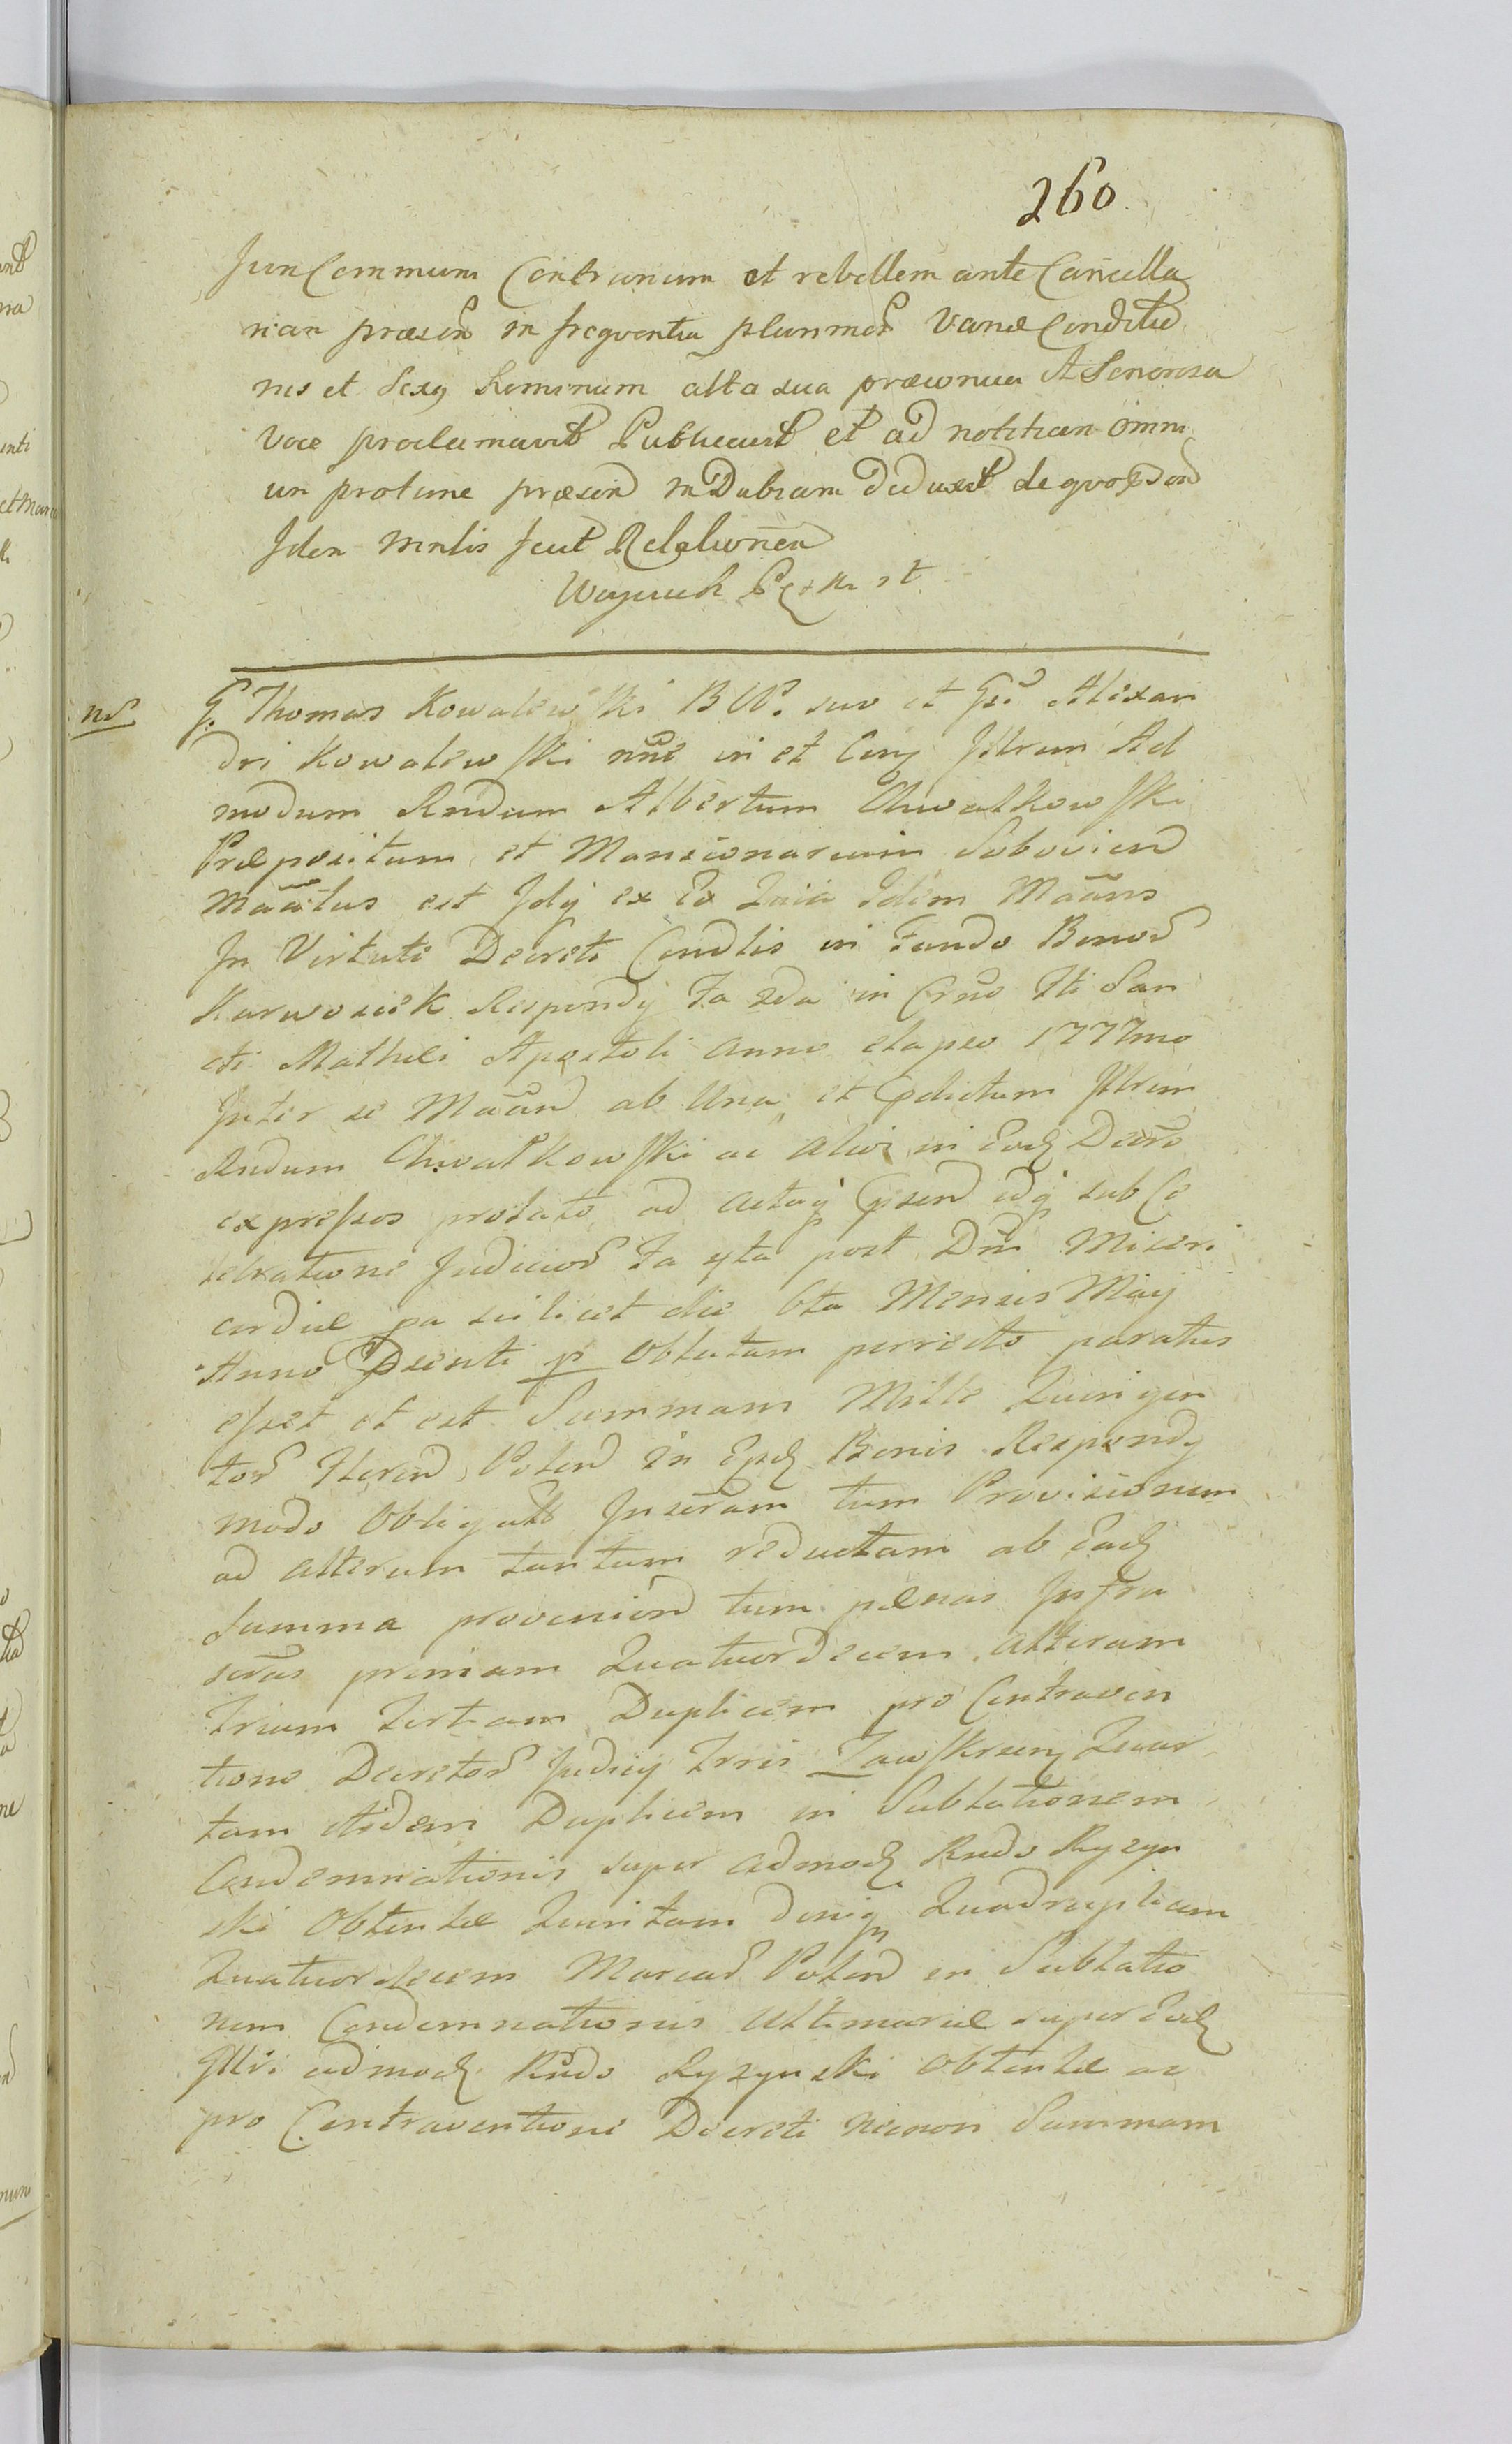 260
Juri Communi Contrarium et rebellem ante Cancella
riam præsen in freqventia plurimor Variæ Conditio
nis et Sexq Hominum alta sua præconica A Senorosa
Voce proclamavit Publicavit et ad notitiam omni
um protunc præsen in Dubiam deduxit de qvo Eand
Idem Mnlis fecit Relationem
Woyciech
nr
G. Thomas Kowalewski suo et Gsi Alexan
dri Kowalewski nne in et Cong Illrum Ad
modum Rndum Albertum Chwalkowski
Præpositum et Mansionarium Subovien
Mãatus est Idq ex Eo Quia Idem Mãans
In Virtute Decreti Condlis in Fundo Bonor
Karwosiek Respendy Fa 2da in Crno Fti San
cti Mathei Apostoli Anno elapso 1777mo
Inter se Mãan ab Una et Pdictum Illrem
Rndum Chwalkowski ac alios in Eod Decro
expressos prolato ad Actaq Psen idq sub Ce
lebratione Judicior Fa 4ta post Dni Miseri
cordiæ pa scilicet die 6ta Mensis Maij
Anno Psenti p Oblatam porrecto paratus
esset et est Summam Mille Quingen
tor Floren Polon in Eisd Bonis Respendy
modo Obligatt Inscram tum Provisionem
ad alterum tantum reductam ab Ead
Summa provenien tum pænas Infra
scras primam Quatuordecem alteram
Trium Tertiam Duplicem pro Contraven
tione Decretor Judicij Trris Zawskrzen Quar
tam itidem Duplicem in Sublationem
Condemnationis super admod Rndo Ryszyn
ski Obtentæ Quintam deniq Quadruplicem
Quatuordecem Marcar Polon in Sublatio
nem Condemnationis Ultimariæ super Eod
Illri admod Rndo Ryszynski Obtentæ ac
pro Contraventione Decreti necnon Summam